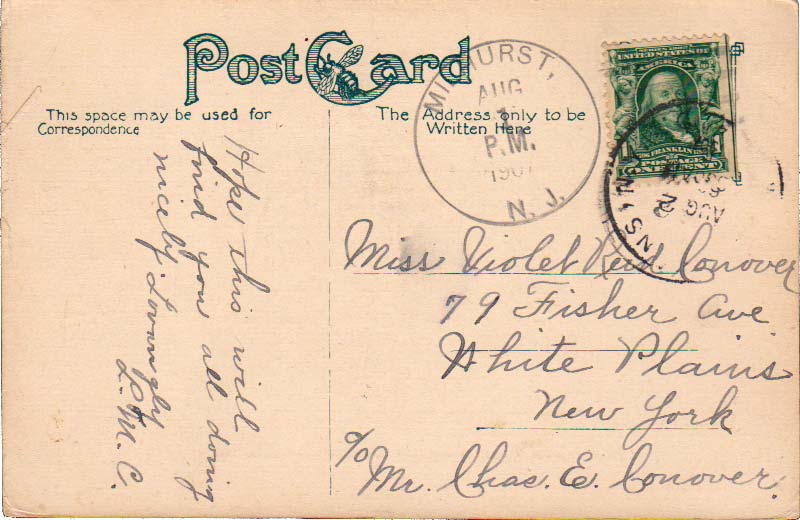 Post Card
This space may be used for
Correspondence
The Address only to be
Written Here
MILHURST,
AUG
1
P.M.
1907
N. J.
UNITED STATES OF
AMERICA
FRANKLIN
POSTAGE
ONE CENT
AUG
2
Hope this will
find you all doing
nicely Lovingly
L. M. C.
Miss Violet Reid Conover
79 Fisher Ave
White Plains
New York
c/o Mr. Chas. E. Conover.